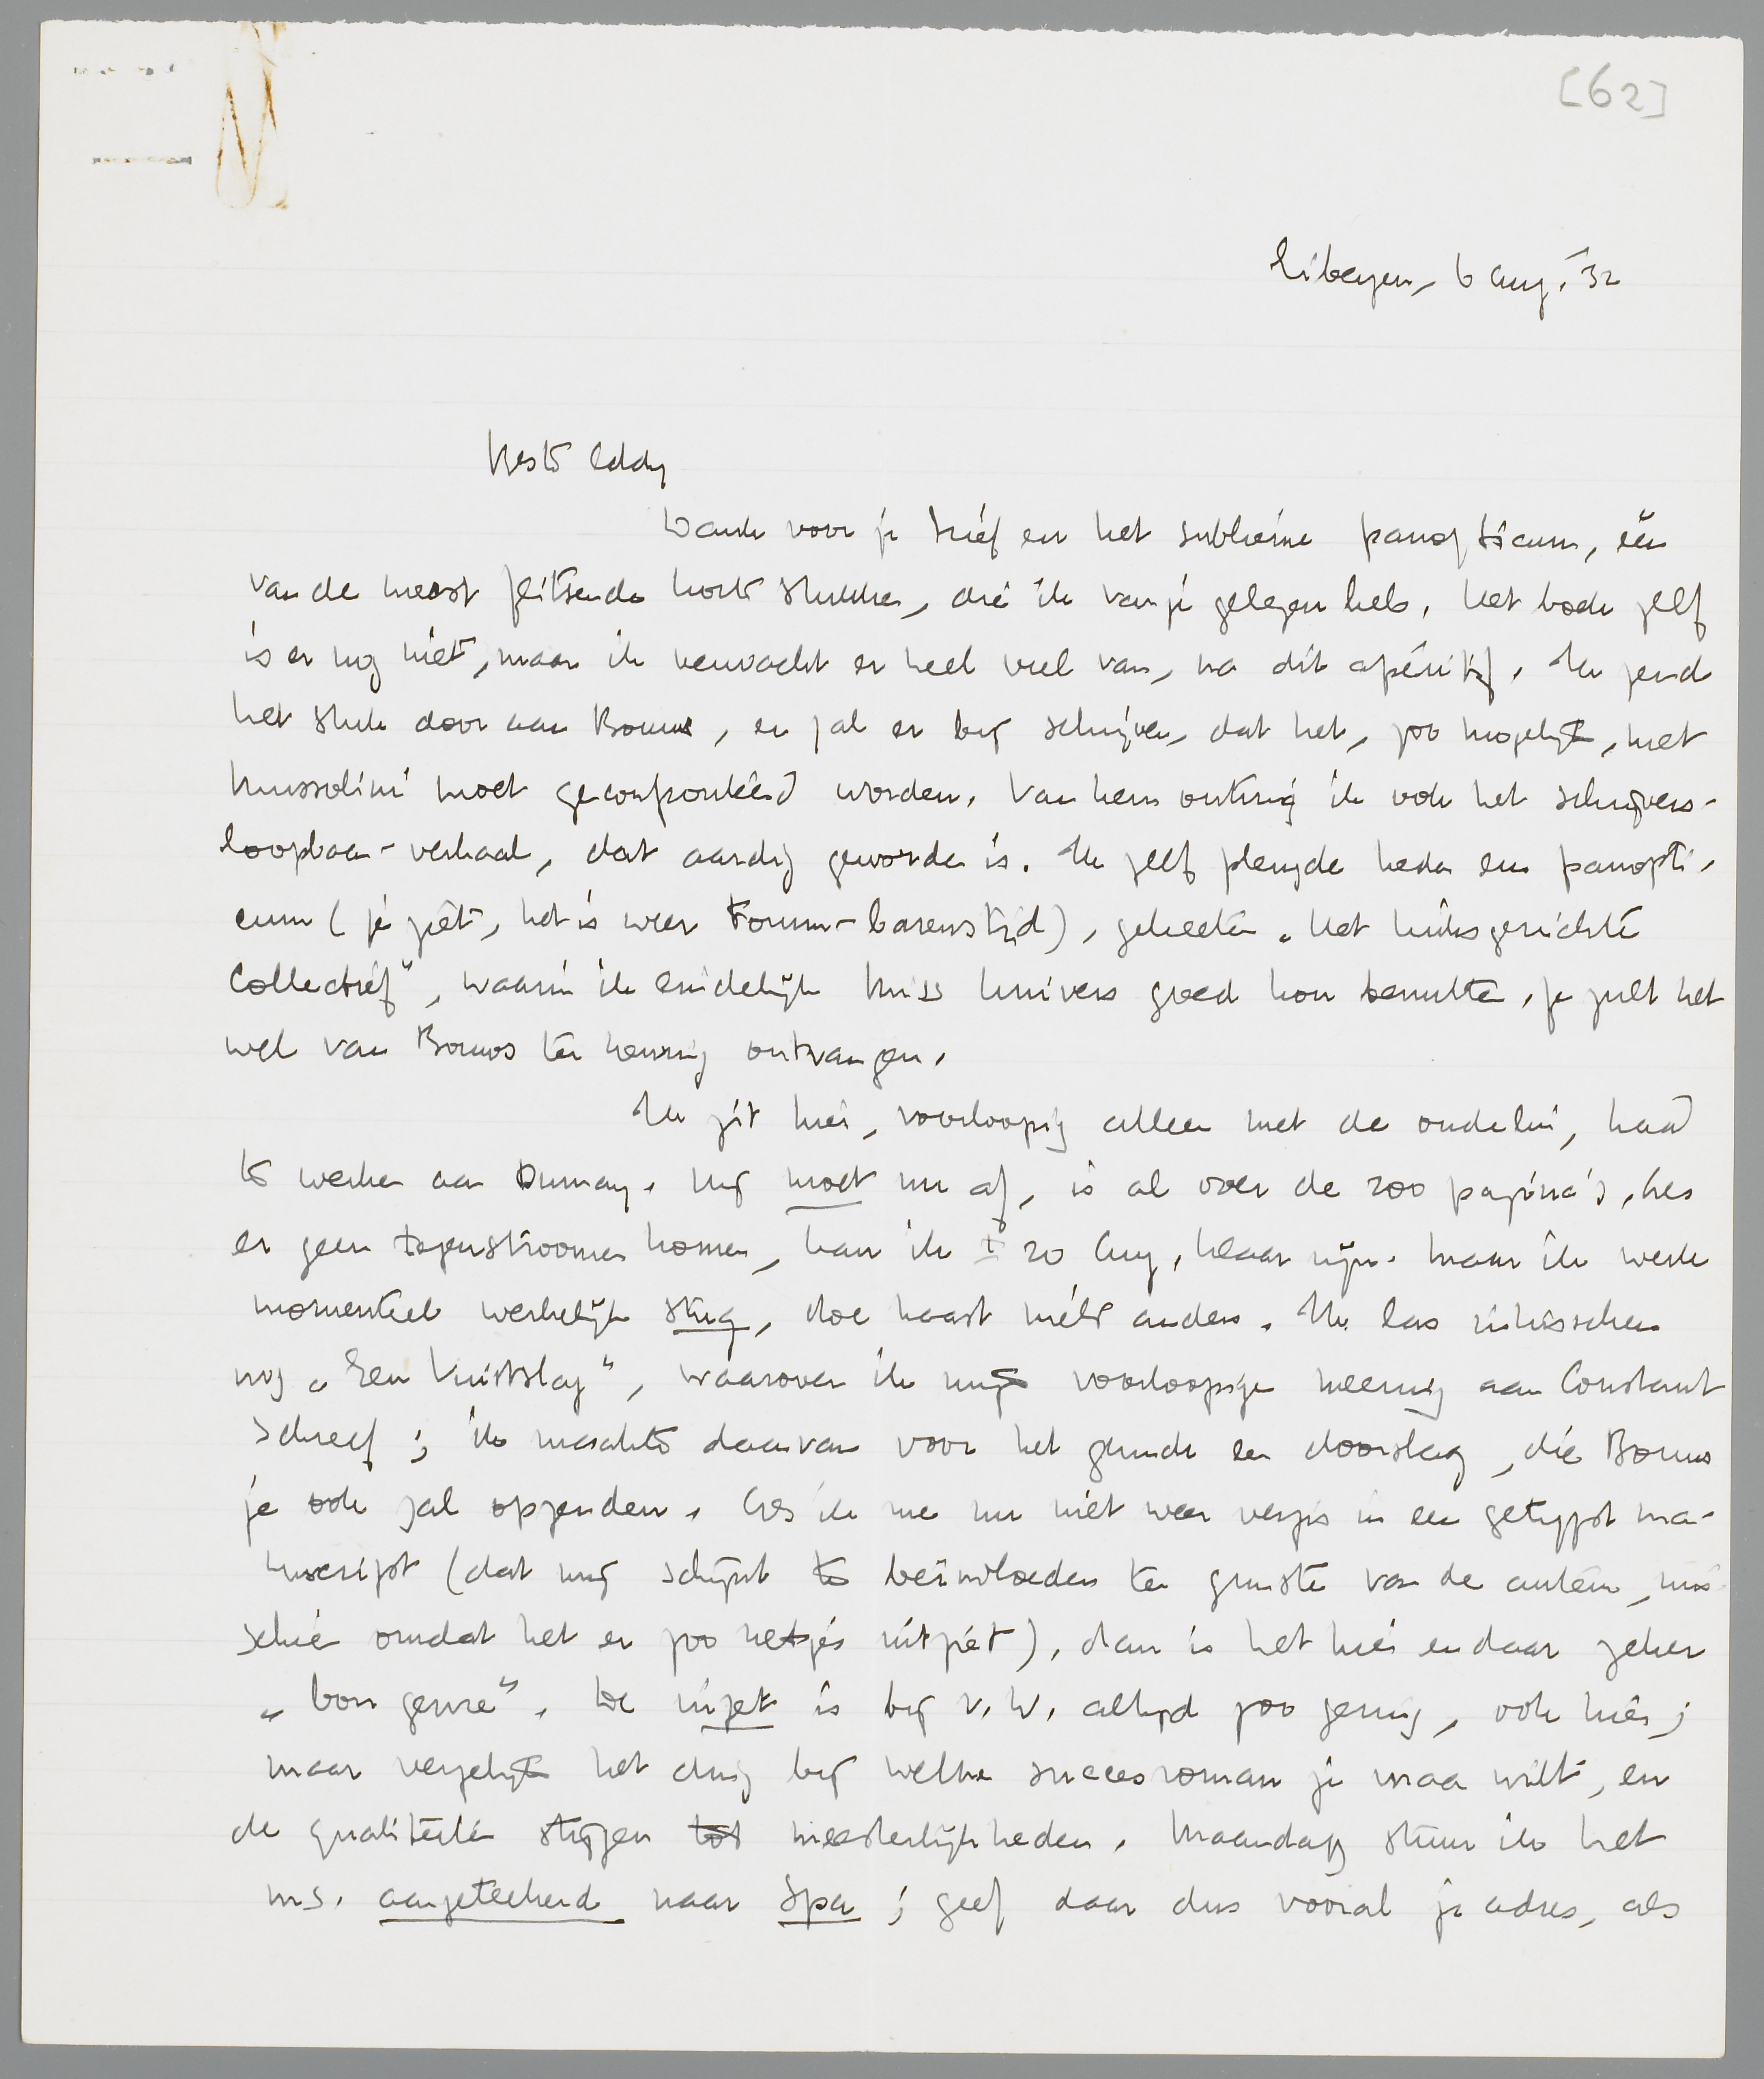 [62]
Eibergen, 6 Aug. '32
Beste Eddy
Dank voor je brief en het sublieme panopticum, één
van de meest flitsende korte stukken, die ik van je gelezen heb. Het boek zelf
is er nog niet, maar ik verwacht er heel veel van, na dit apéritif. Ik zend
het stuk door aan Bouws, en zal er bij schrijven, dat het, zoo mogelijk, met
Mussolini moet geconfronteerd worden. Van hem ontving ik ook het schrijvers-
loopbaan-verhaal, dat aardig geworden is. Ik zelf pleegde heden een panopti-
cum (je ziet, het is weer Forum-barenstijd), geheeten „Het linksgerichte
Collectief", waarin ik eindelijk Miss Univers goed kon benutten. Je zult het
wel van Bouws ter lezing ontvangen.
Ik zit hier, voorloopig alleen met de oudelui, hard
te werken aan Dumay. Hij moet nu af, is al over de 200 pagina's. Als
er geen tegenstroomen komen, kan ik ± 20 Aug. klaar zijn. Maar ik werk
momenteel werkelijk stug, doe haast niets anders. Ik las intusschen
nog „Een Vuistslag", waarover ik mijn voorloopige meening aan Constant
schreef; ik maakte daarvan voor het gemak een doorslag, die Bouws
je ook zal opzenden. Als ik me nu niet weer vergis in een getypt ma-
nuscript (dat mij schijnt te beïnvloeden ten gunste van de auteur, mis-
schien omdat het er zoo netjes uitziet), dan is het hier en daar zeker
„bon genre". De inzet is bij v. W. altijd zoo gering, ook hier;
maar vergelijk het ding bij welke succesroman je maar wilt, en
de qualiteiten stijgen tot meesterlijkheden. Maandag stuur ik het
ms. aangeteekend naar Spa; geef daar dus vooral je adres, als